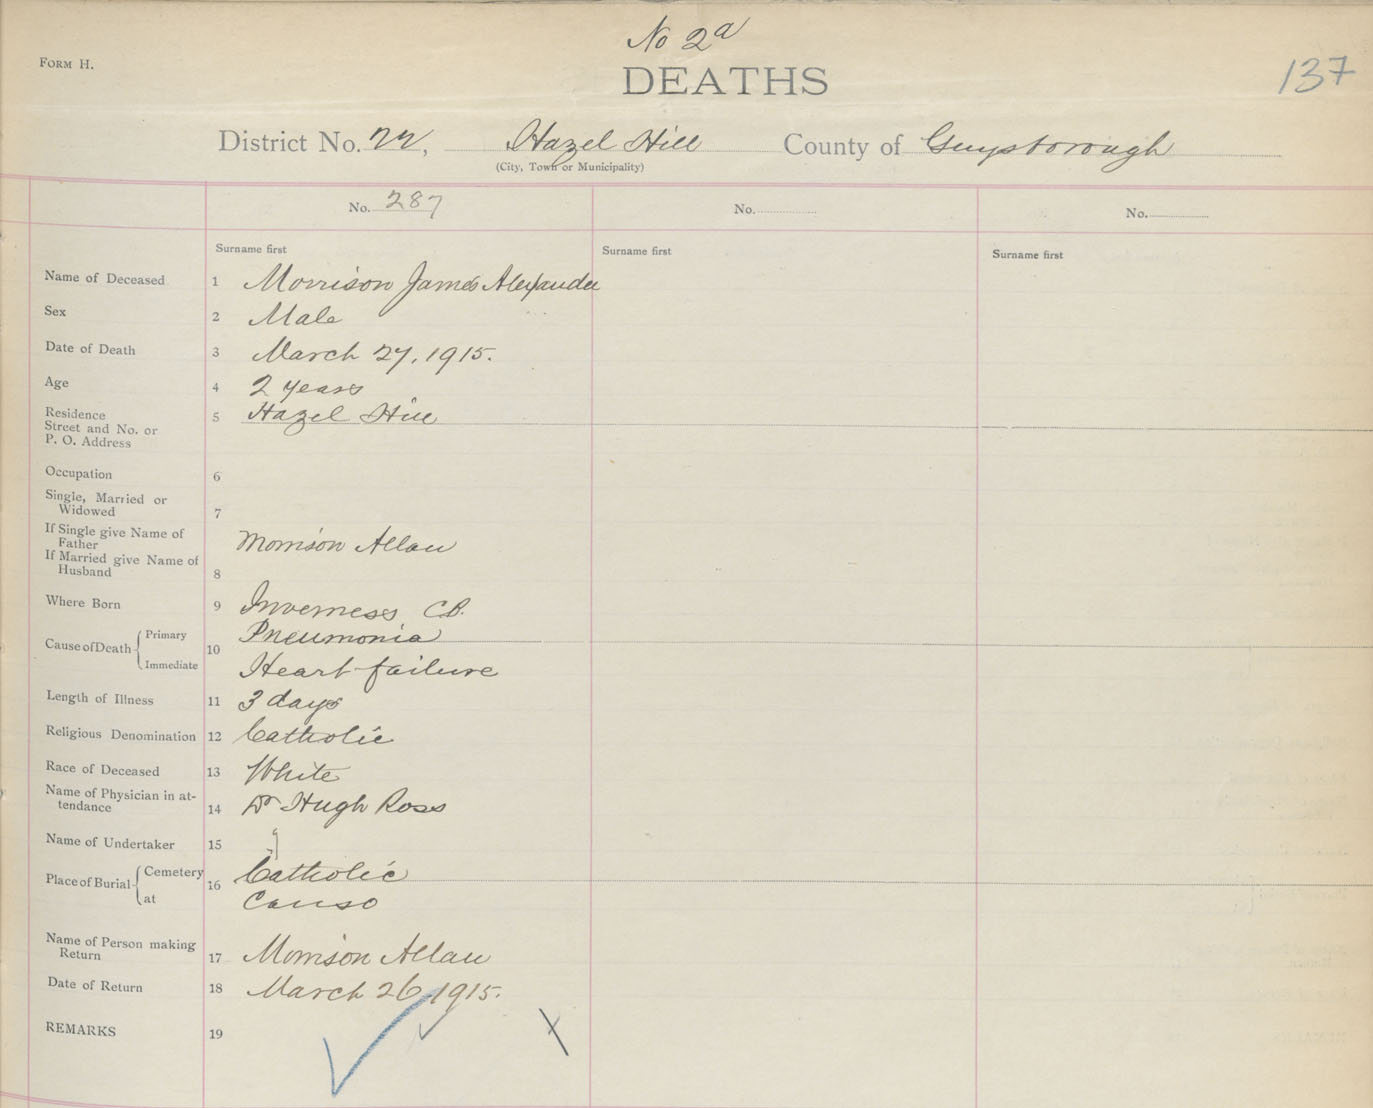 No 2a
FORM H.
DEATHS
137
District No. 22, Hazel Hill County of Guysborough
(City, Town or Municipality)
No. 287
No.
No.
Surname first
Surname first
Surname first
Name of Deceased 1 Morrison James Alexander
Sex 2 Male
Date of Death 3 March 27, 1915.
Age 4 2 years
Residence
Street and No. or 5 Hazel Hill
P. O. Address
Occupation 6
Single, Married or
Widowed 7
If Single give Name of
Father Morrison Allan
If Married give Name of
Husband 8
Where Born 9 Inverness C.B.
Cause of Death Primary 10 Pneumonia
Immediate Heart failure
Length of Illness 11 3 days
Religious Denomination 12 Catholic
Race of Deceased 13 White
Name of Physician in at-
tendance 14 Dr Hugh Ross
Name of Undertaker 15
Place of Burial Cemetery 16 Catholic
at Canso
Name of Person making
Return 17 Morrison Allan
Date of Return 18 March 26, 1915.
REMARKS 19